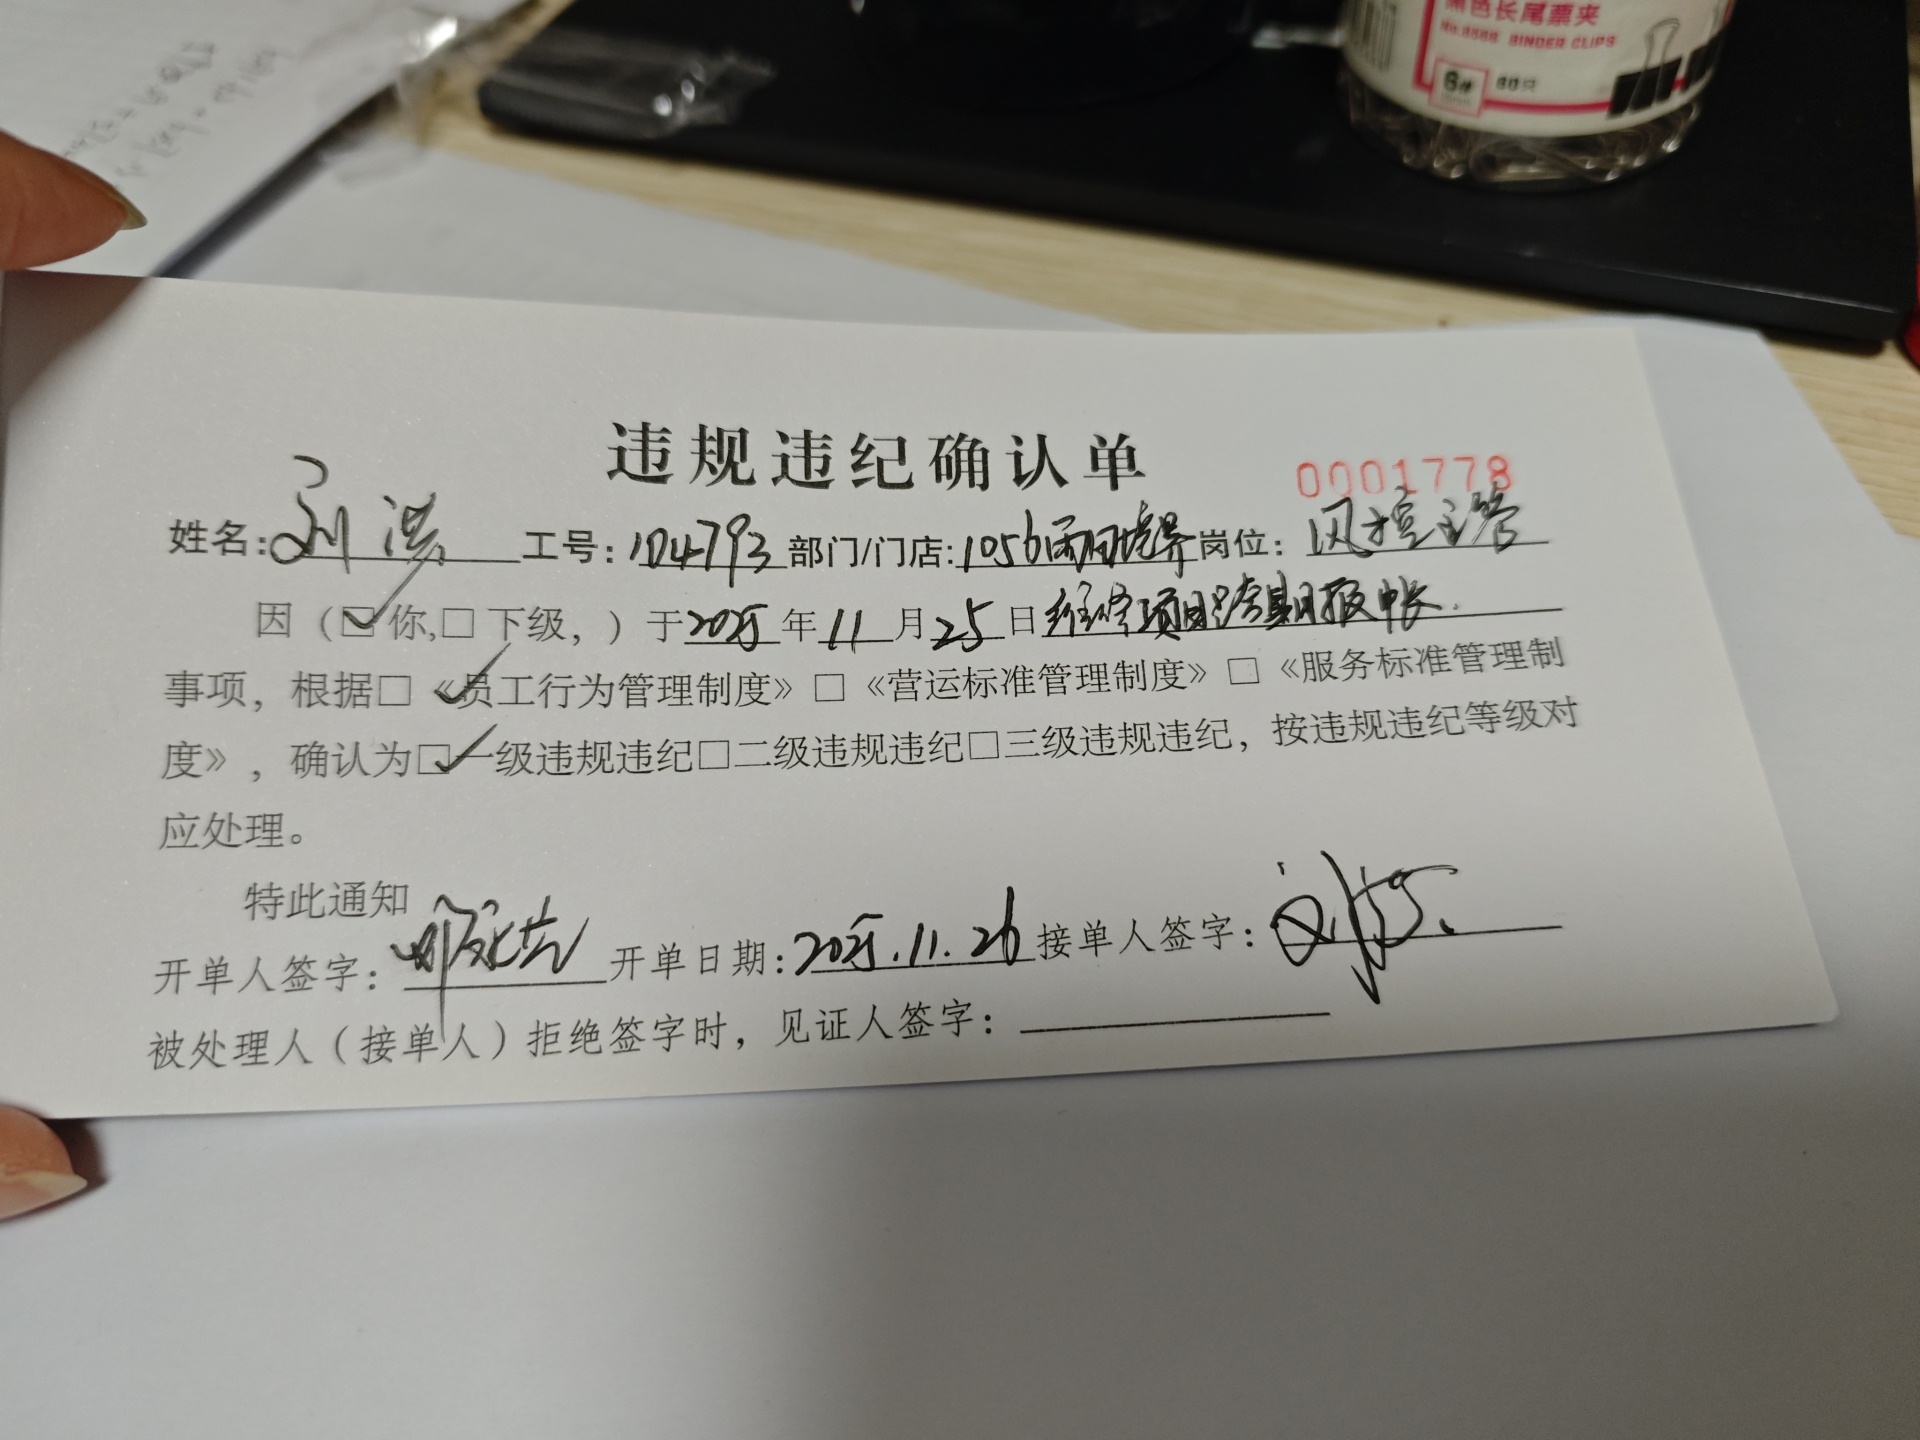 黑色长尾票夹
No.8568 BINDER CLIPS
6# 60只
违规违纪确认单
0001778
姓名:刘洪 工号:104793 部门/门店:1056 岗位:风控主管
因（☑你,□下级，）于2025年11月25日维修项目跨期报帐.
事项，根据☑《员工行为管理制度》□《营运标准管理制度》□《服务标准管理制
度》，确认为☑一级违规违纪□二级违规违纪□三级违规违纪，按违规违纪等级对
应处理。
特此通知
开单人签字: 开单日期:2025.11.26 接单人签字:
被处理人（接单人）拒绝签字时，见证人签字: